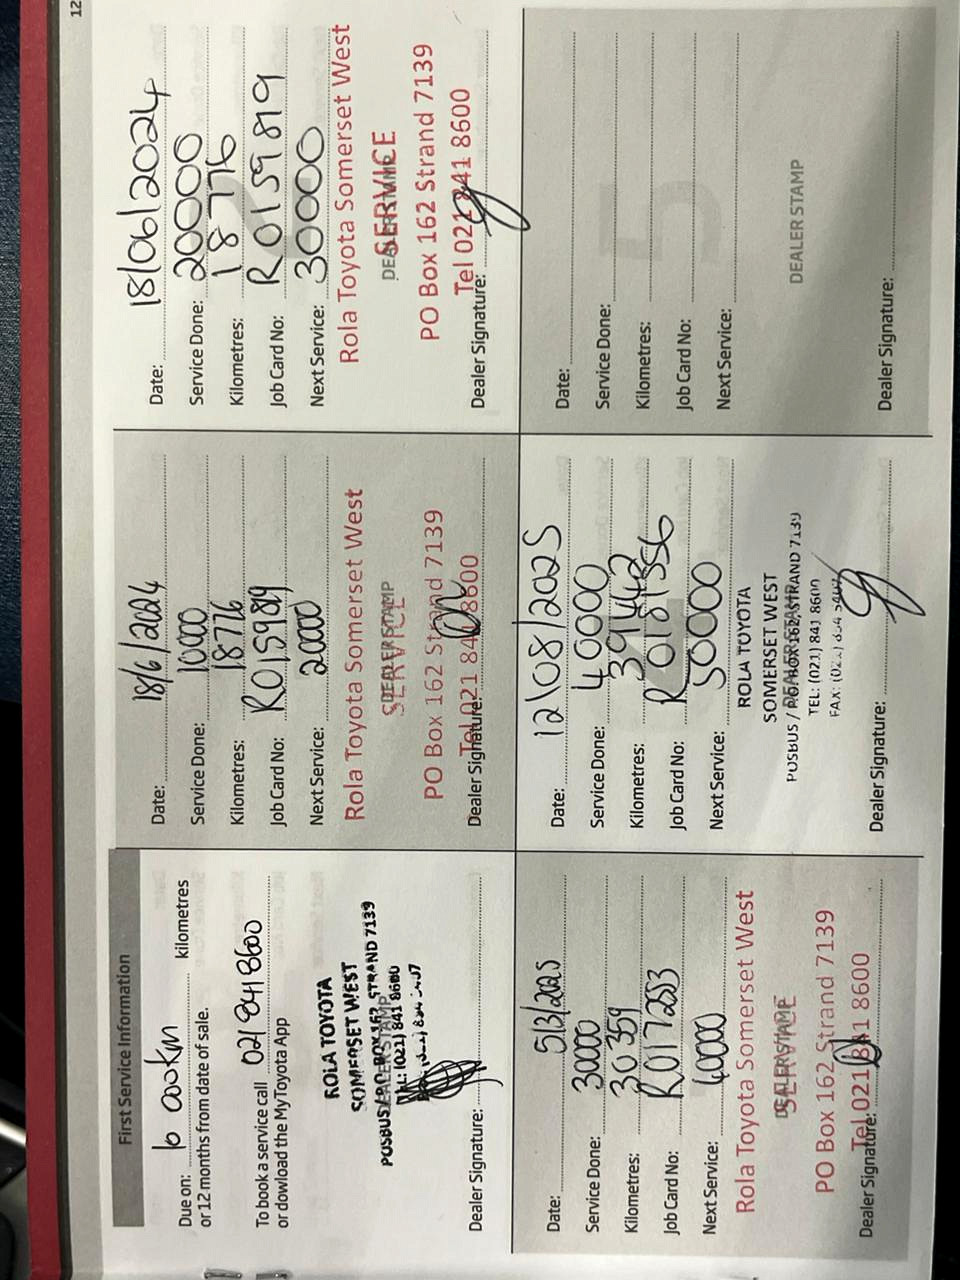 12
First Service Information
Due on: 10 000km kilometres
or 12 months from date of sale.
To book a service call 021 841 8600
or dowload the MyToyota App
ROLA TOYOTA
SOMERSET WEST
POSBUS / P.O. BOX 162, STRAND 7139
TEL: (021) 841 8600
DEALER STAMP
Dealer Signature:
Date: 18/6/2024
Service Done: 10000
Kilometres: 18776
Job Card No: R0159819
Next Service: 20000
Rola Toyota Somerset West
DEALER STAMP
SERVICE
PO Box 162 Strand 7139
Tel 021 841 8600
Dealer Signature:
Date: 18/06/2024
Service Done: 20000
Kilometres: 18776
Job Card No: R0159819
Next Service: 30000
Rola Toyota Somerset West
DEALER STAMP
SERVICE
PO Box 162 Strand 7139
Tel 021 841 8600
Dealer Signature:
Date: 5/3/2025
Service Done: 30000
Kilometres: 30359
Job Card No: R0172553
Next Service: 40000
Rola Toyota Somerset West
DEALER STAMP
SERVICE
PO Box 162 Strand 7139
Tel 021 841 8600
Dealer Signature:
Date: 12/08/2025
Service Done: 40000
Kilometres: 39442
Job Card No: R0181556
Next Service: 50000
ROLA TOYOTA
SOMERSET WEST
POSBUS / P.O. BOX 162, STRAND 7139
DEALER STAMP
TEL: (021) 841 8600
FAX: (021)
Dealer Signature:
5
Date:
Service Done:
Kilometres:
Job Card No:
Next Service:
DEALER STAMP
Dealer Signature: